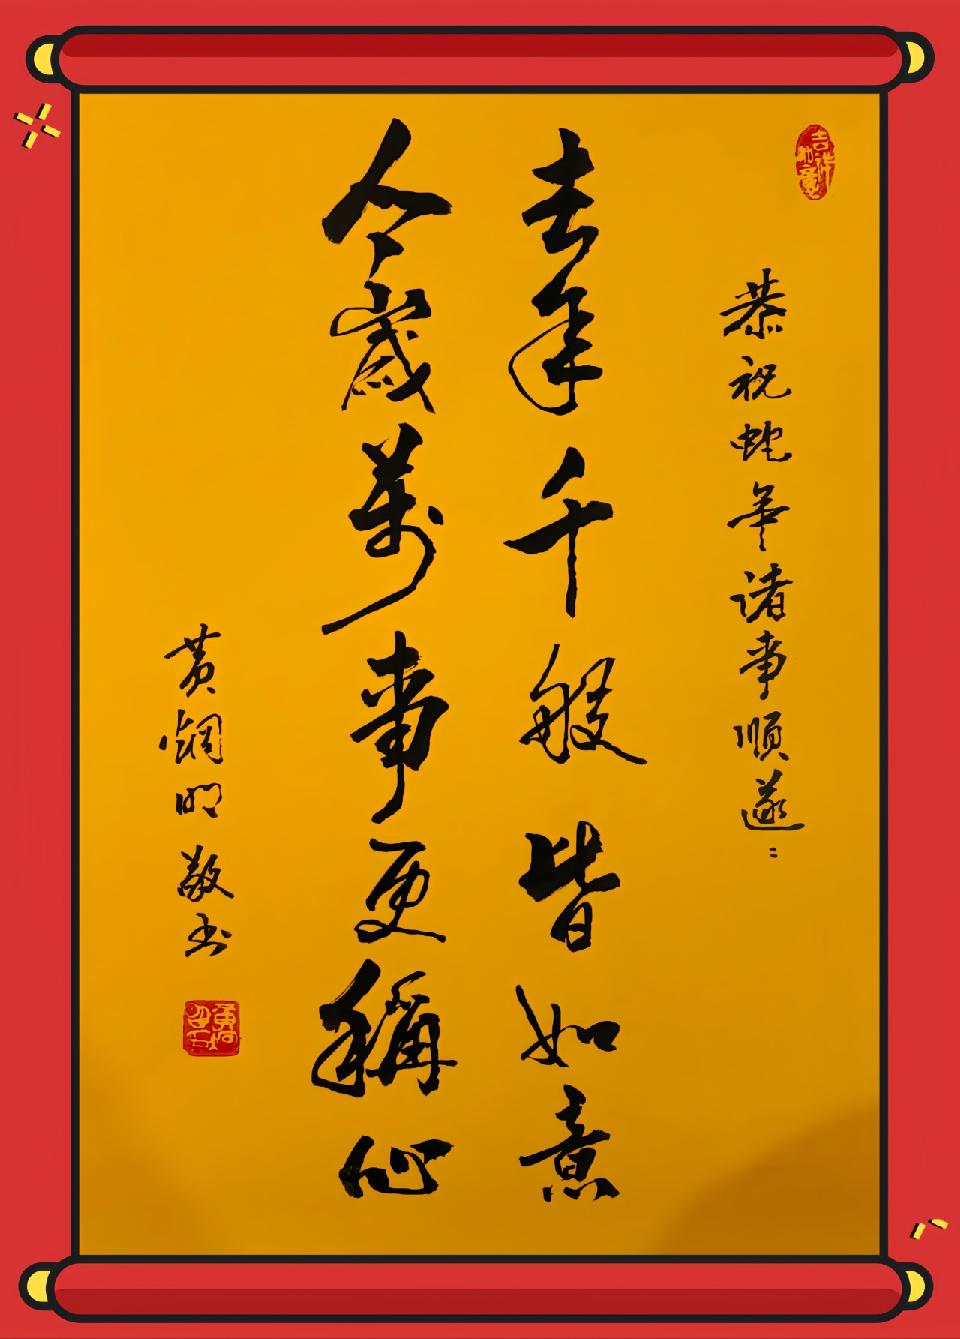 恭祝蛇年诸事順遂：
去年千般皆如意
今歲萬事更稱心
黄炯明敬书